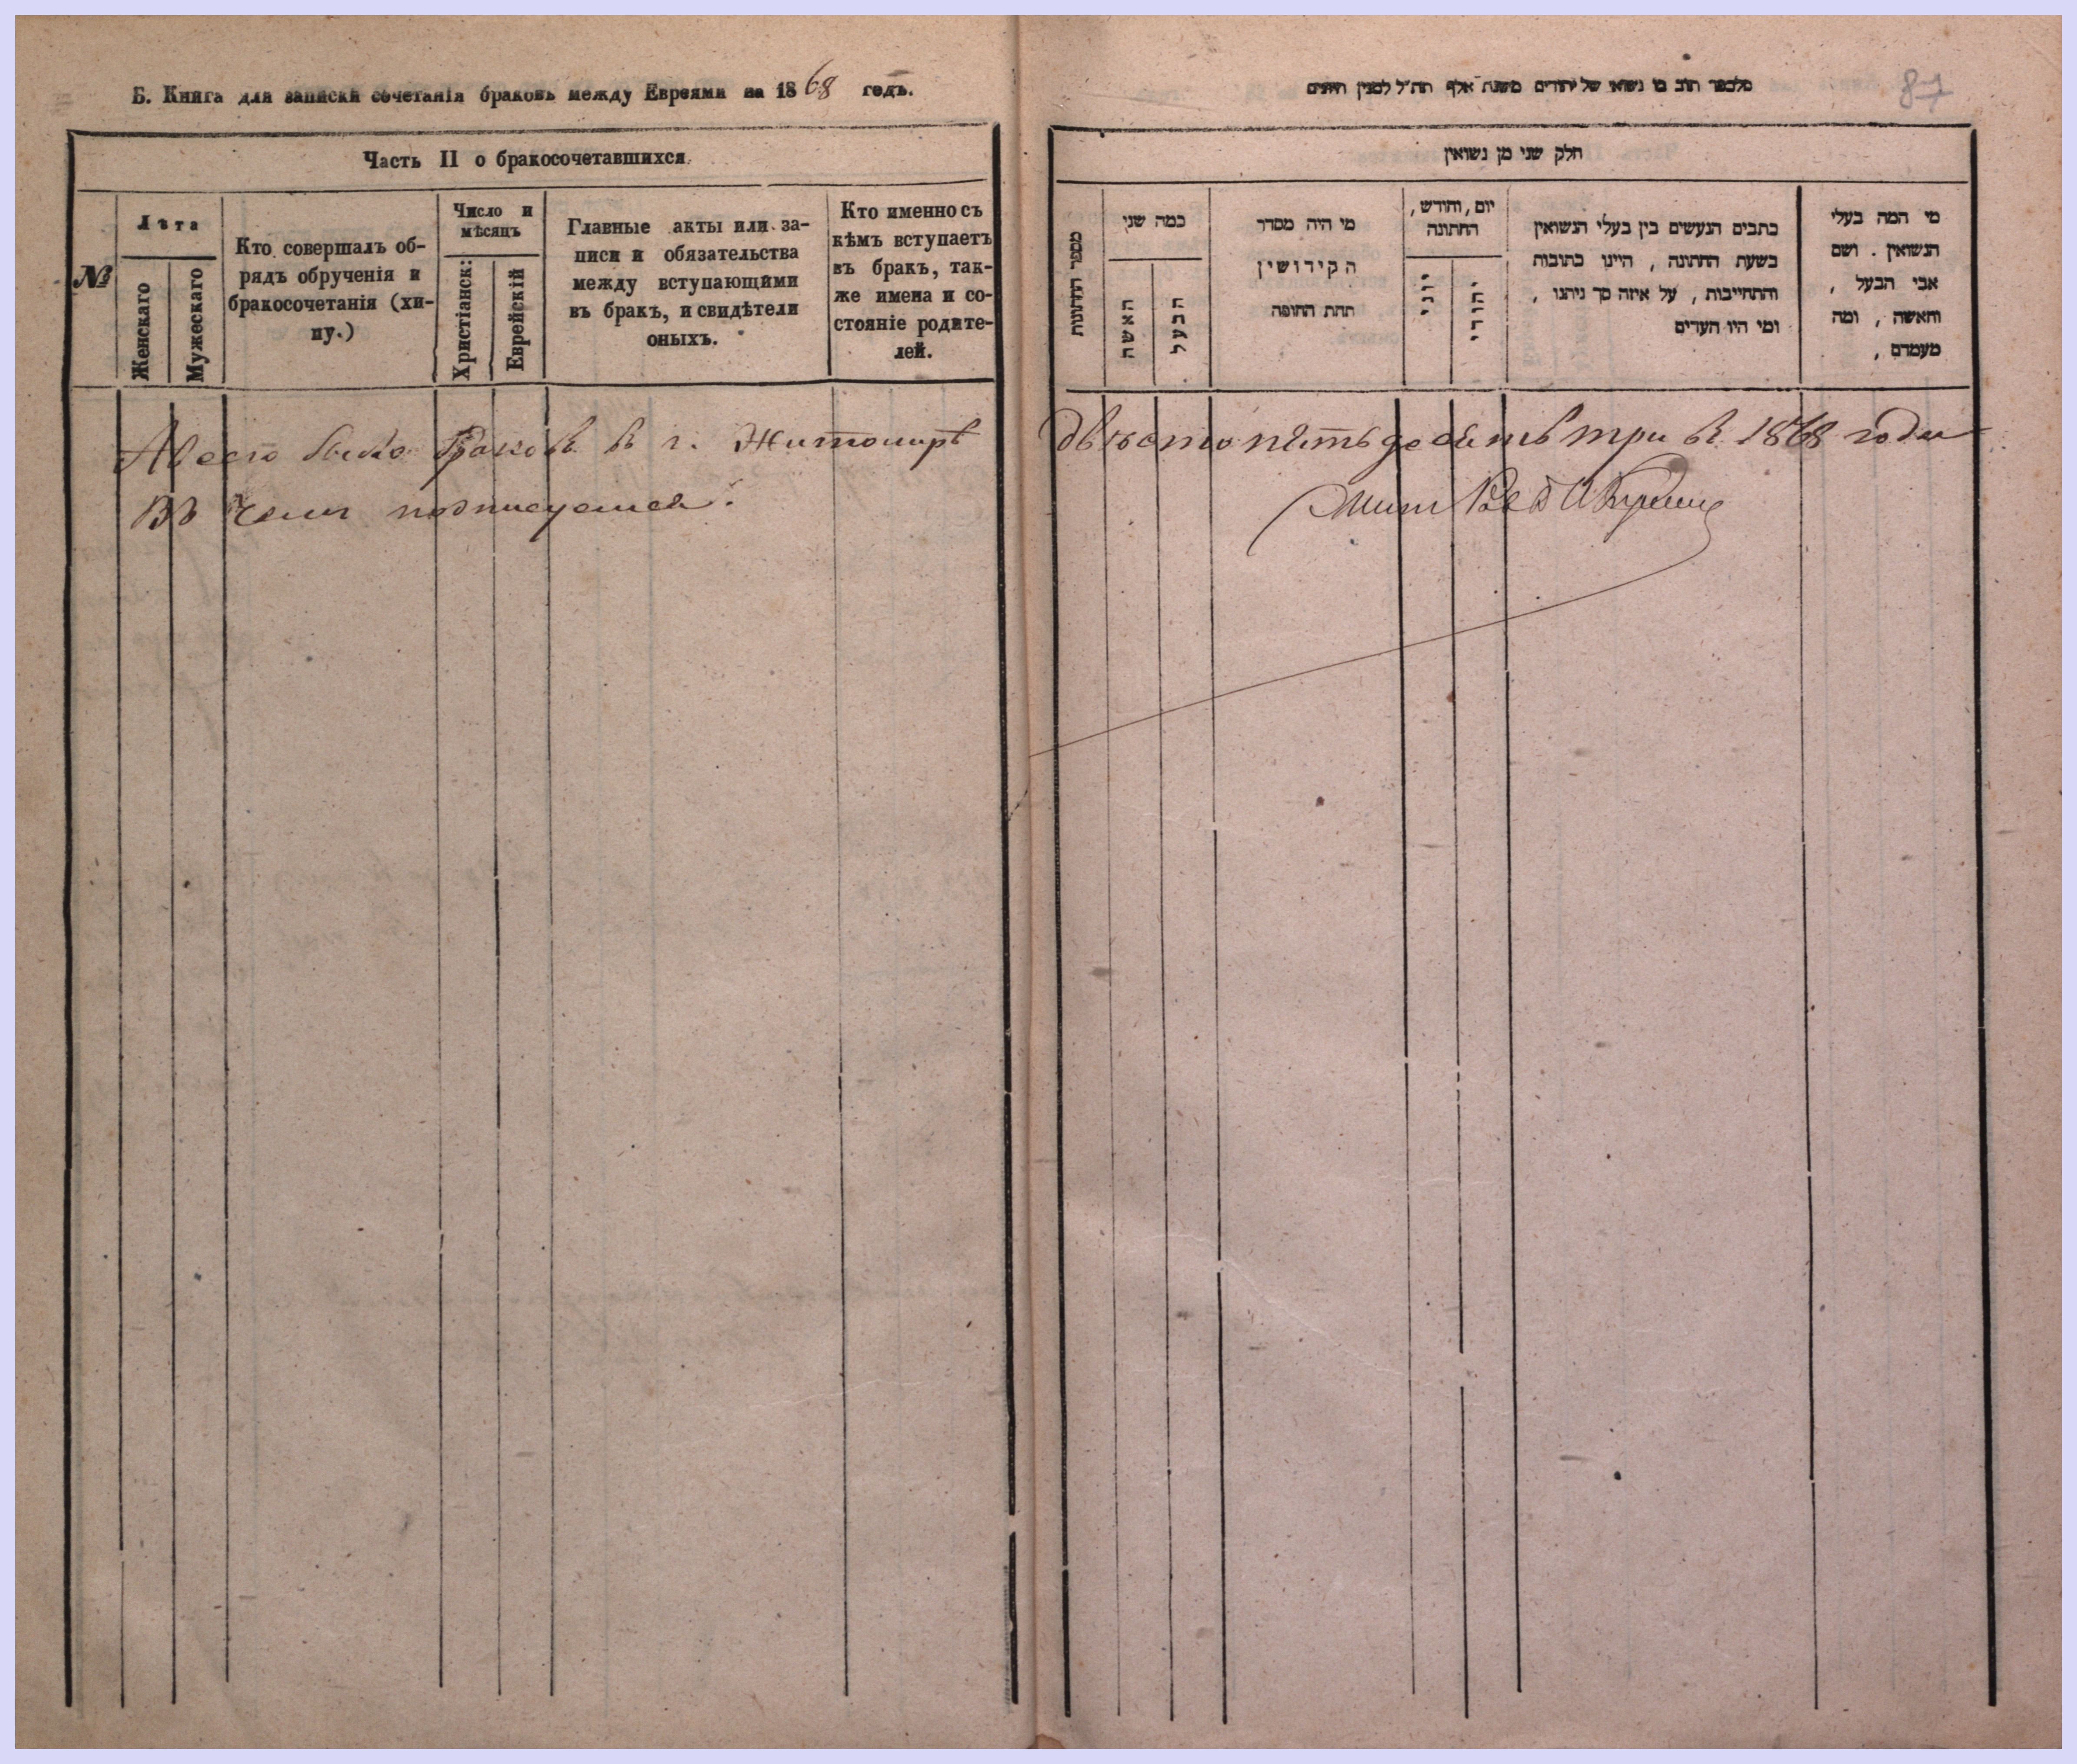 Б. Книга для записки сочетанія браковъ между Евреями за 1868 годъ.
Часть II о бракосочетавшихся.
№
Лѣта
Женскаго
Мужескаго
Кто совершалъ об-
рядъ обрученія и
бракосочетанія (хи-
пу.)
Число и
мѣсяцъ
Христіанск:
Еврейскій
Главные акты или за-
писи и обязательства
между вступающими
въ бракъ, и свидѣтели
оныхъ.
Кто именно съ
кѣмъ вступаетъ
въ бракъ, так-
же имена и со-
стояніе родите-
лей.
А всего было браковъ в г. Житомирѣ
въ чемъ подписуемся:
87
של יהודים משנת אלף תת״ל למנין היונים
חלק שני מן נשואין
מספר החתונות
כמה שני
האשה
הבעל
מי היה מסדר
הקידושין
תחת החופה
יום, וחודש,
החתונה
יוני
יהודי
כתבים הנעשים בין בעלי הנשואין
בשעת החתונה, היינו כתובות
והתחייבות, על איזה סך ניתנו,
ומי היו העדים
מי המה בעלי
הנשואין. ושם
אבי הבעל,
והאשה, ומה
מעמדם,
двѣсто пятьдесять три в 1868 году